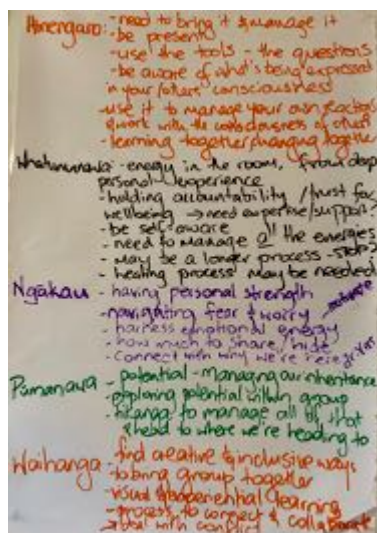 Hinengaro: - need to bring it & manage it
- be present
- use the tools - the questions
- be aware of what's being expressed
in your/others consciousness
- use it to manage your own reactions
& work with the consciousness of others
- learning together, changing together
Whatumanawa - energy in the room, from deep
personal experience
- holding accountability / trust for
wellbeing → need expertise/support?
- be self-aware
- need to manage all the energies
- may be a longer process - steps
- healing process may be needed
Ngākau - having personal strength
- navigating fear & worry
- harness emotional energy
- how much to share/hide
- Connect with why we're here
Pūmanawa - potential - managing our inheritance
- exploring potential within group
- tikanga to manage all of that
& head to where we're heading to
Waihanga - find creative & inclusive ways
to bring group together
- visual & experiential learning
- process to connect & collaborate
→ deal with conflict